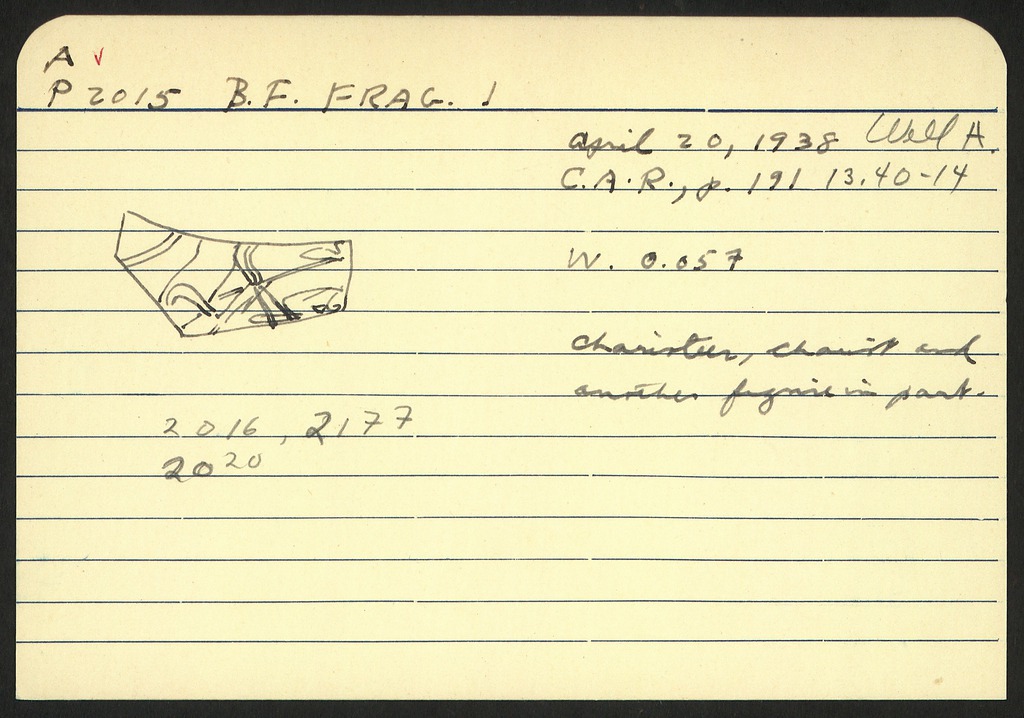 A ✓
P 2015 B.F. FRAG. 1
April 20, 1938 Well A.
C.A.R., p. 191 13.40-14
W. 0.057
Charioteer, chariot and
another figure in part.
2016, 2177
2020